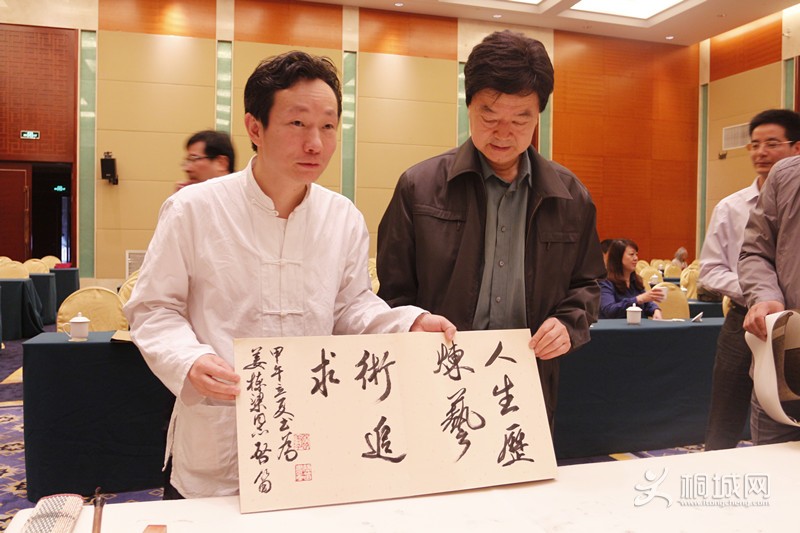 人生歷
煉藝
術追
求
甲午立夏书为
姜栋梁
桐城网
www.itongcheng.com